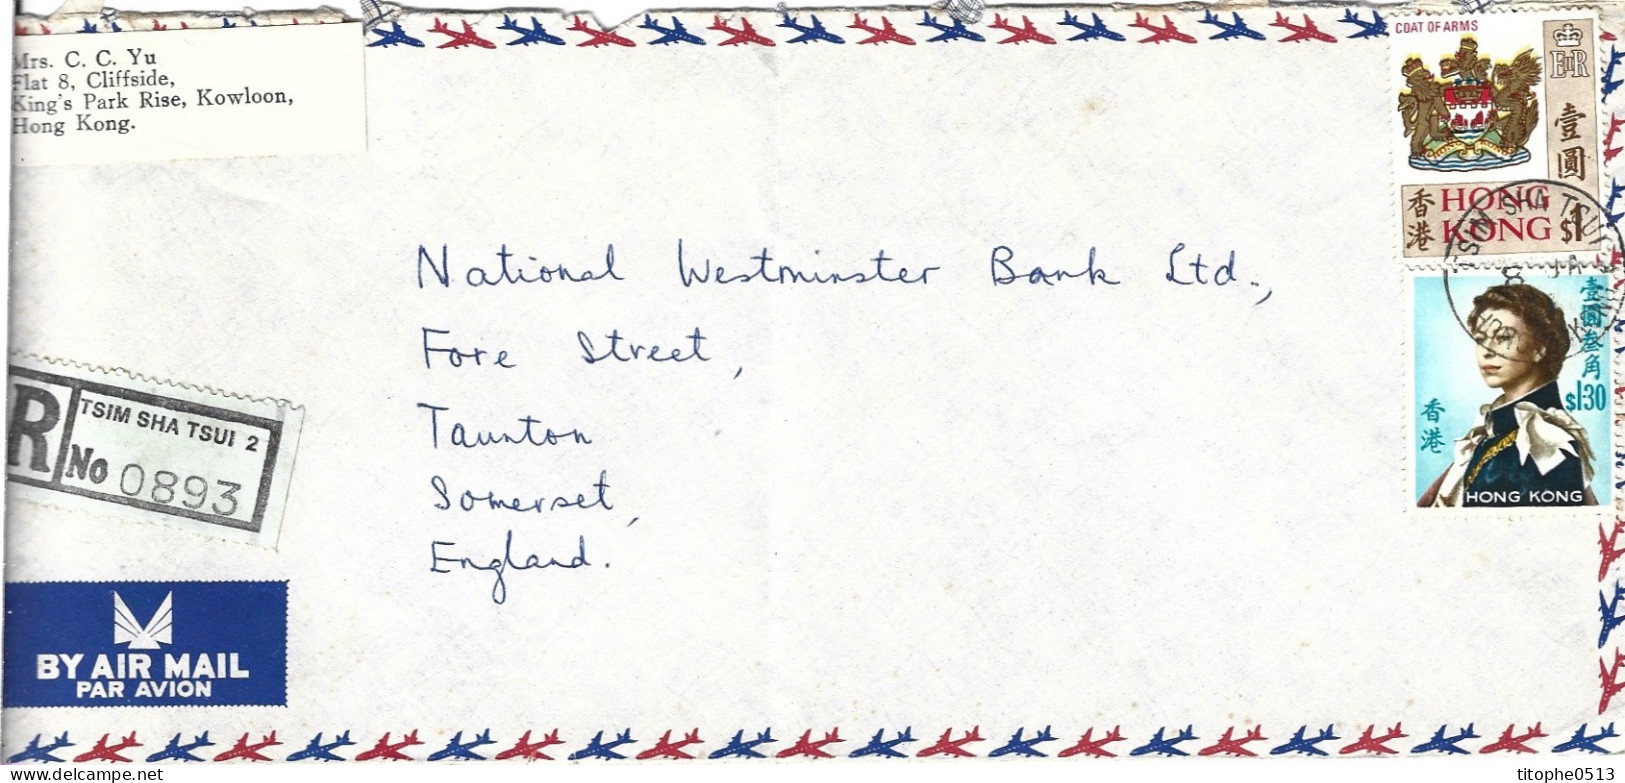 Mrs. C. C. Yu
Flat 8, Cliffside,
King's Park Rise, Kowloon,
Hong Kong.
COAT OF ARMS
EIIR
壹圓
香港
HONG KONG
$1
TSIM SHA TSUI
National Westminster Bank Ltd.,
Fore Street,
Taunton
Somerset,
England.
壹圓叁角
$1.30
香港
HONG KONG
R
TSIM SHA TSUI 2
No 0893
BY AIR MAIL
PAR AVION
titophe0513